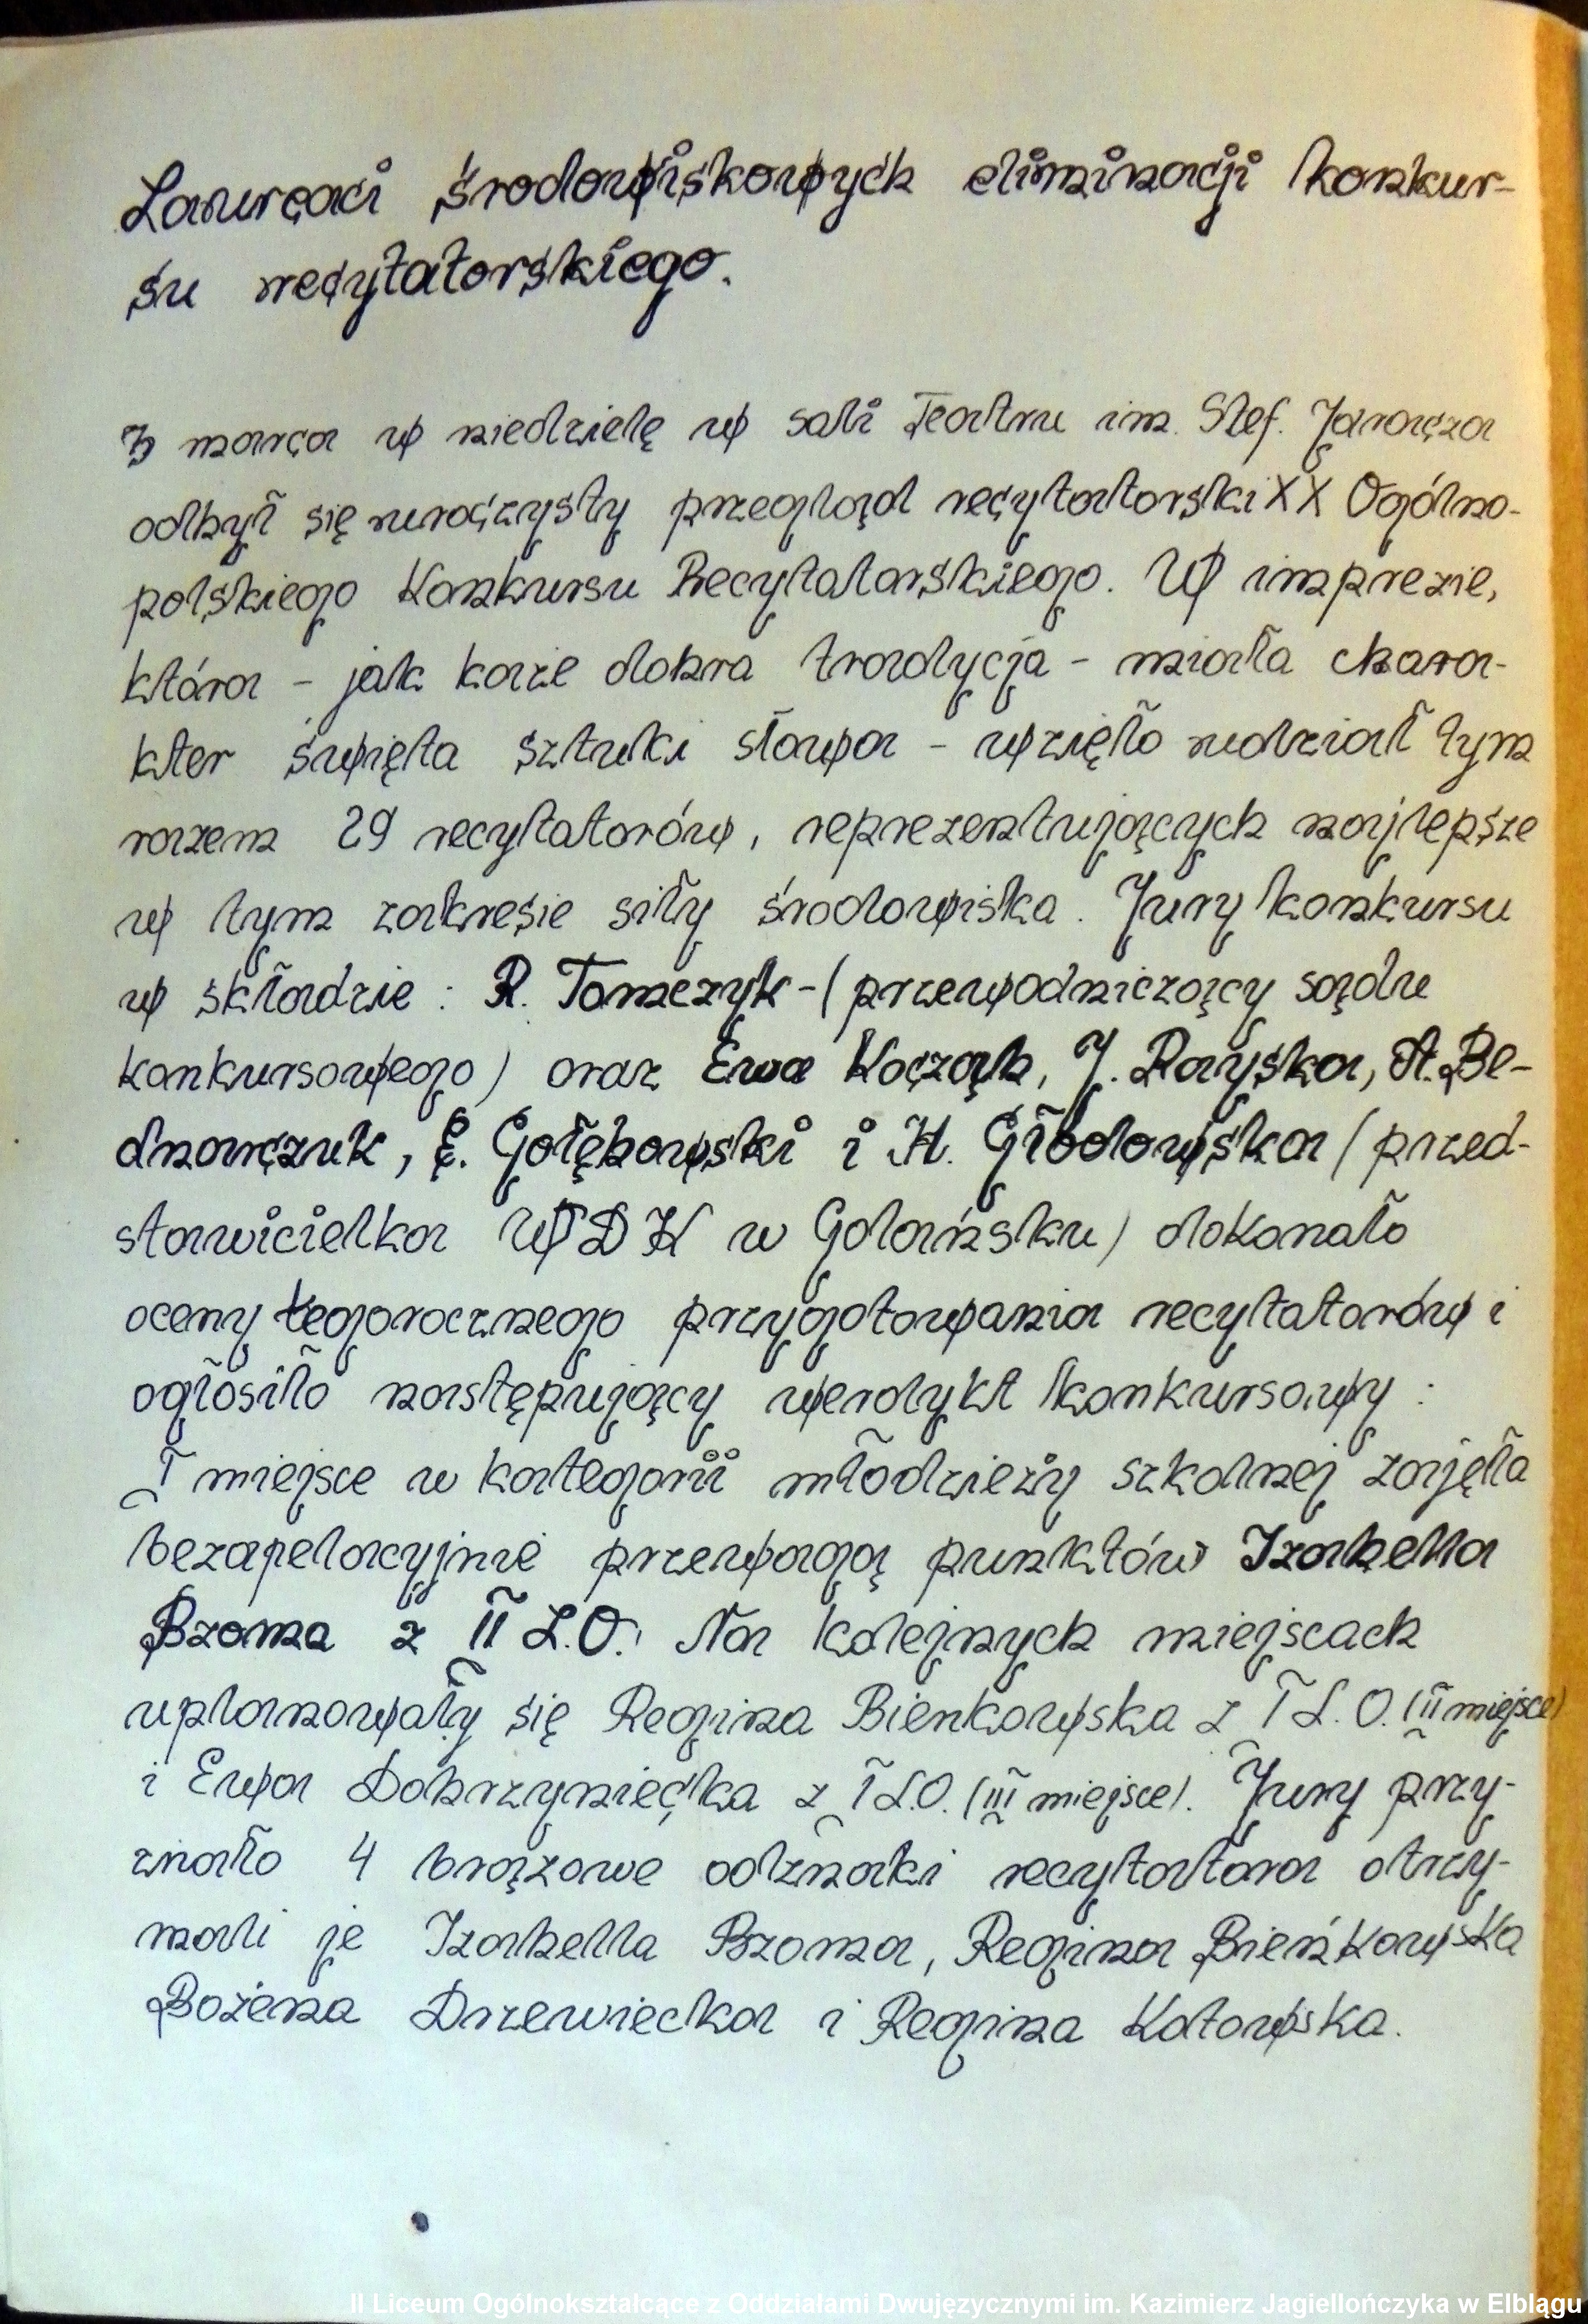 Laureaci środowiskowych eliminacji konkur-
su recytatorskiego.
3 marca w niedzielę w sali Teatru im. Stef. Jaracza
odbył się uroczysty przegląd recytatorski XX Ogólno-
polskiego Konkursu Recytatorskiego. W imprezie,
która - jak każe dobra tradycja - miała chara-
kter święta sztuki słowa - wzięło udział tym
razem 29 recytatorów, reprezentujących najlepsze
w tym zakresie siły środowiska. Jury konkursu
w składzie : R. Tomczyk - (przewodniczący sądu
konkursowego) oraz Ewa Koczak, J. Rayska, A. Be-
dnarczuk, E. Gołębowski i H. Głodowska (przed-
stawicielka WDK w Gdańsku) dokonało
oceny tegorocznego przygotowania recytatorów i
ogłosiło następujący werdykt konkursowy :
I miejsce w kategorii młodzieży szkolnej zajęła
bezapelacyjnie przewagą punktów Izabella
Bzoma z II L.O. Na kolejnych miejscach
uplanowały się Regina Bienkowska z I L.O. (II miejsce)
i Ewa Dobrzyniecka z I L.O. (III miejsce). Jury przy-
znało 4 brązowe odznaki recytatora otrzy-
mali je Izabella Bzoma, Regina Bieńkowska
Bożena Drzewiecka i Regina Kotowska.
II Liceum Ogólnokształcące z Oddziałami Dwujęzycznymi im. Kazimierz Jagiellończyka w Elblągu